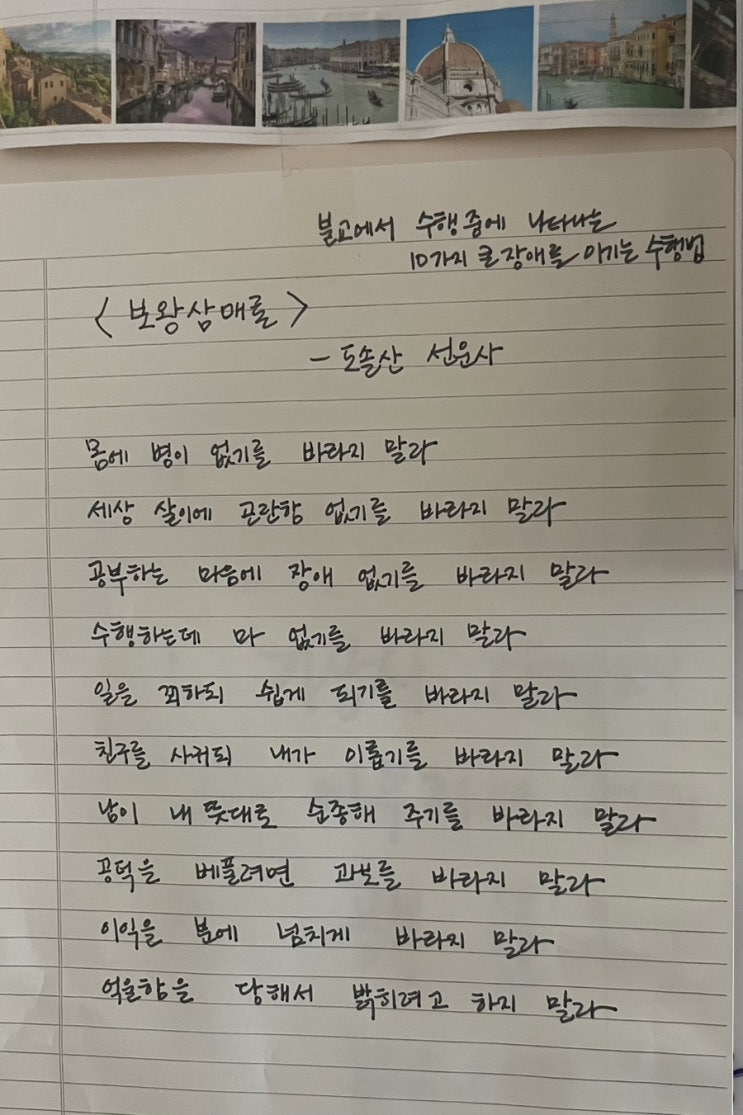 불교에서 수행중에 나타나는
10가지 큰 장애를 이기는 수행법
<보왕삼매론>
- 도솔산 선운사
몸에 병이 없기를 바라지 말라
세상 살이에 곤란함 없기를 바라지 말라
공부하는 마음에 장애 없기를 바라지 말라
수행하는데 마 없기를 바라지 말라
일을 꾀하되 쉽게 되기를 바라지 말라
친구를 사귀되 내가 이롭기를 바라지 말라
남이 내 뜻대로 순종해 주기를 바라지 말라
공덕을 베풀려면 과보를 바라지 말라
이익을 분에 넘치게 바라지 말라
억울함을 당해서 밝히려고 하지 말라